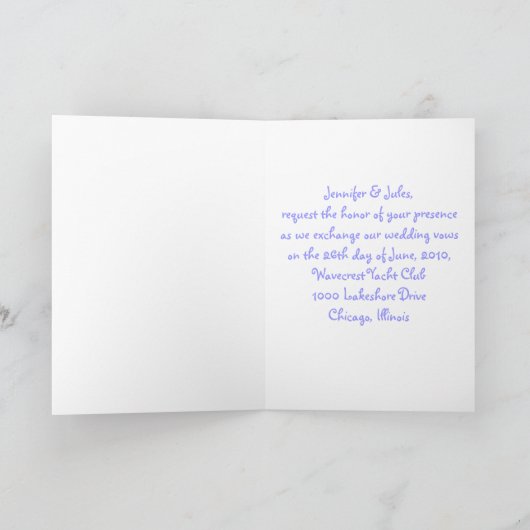 Jennifer & Jules,
request the honor of your presence
as we exchange our wedding vows
on the 26th day of June, 2010,
Wavecrest Yacht Club
1000 Lakeshore Drive
Chicago, Illinois